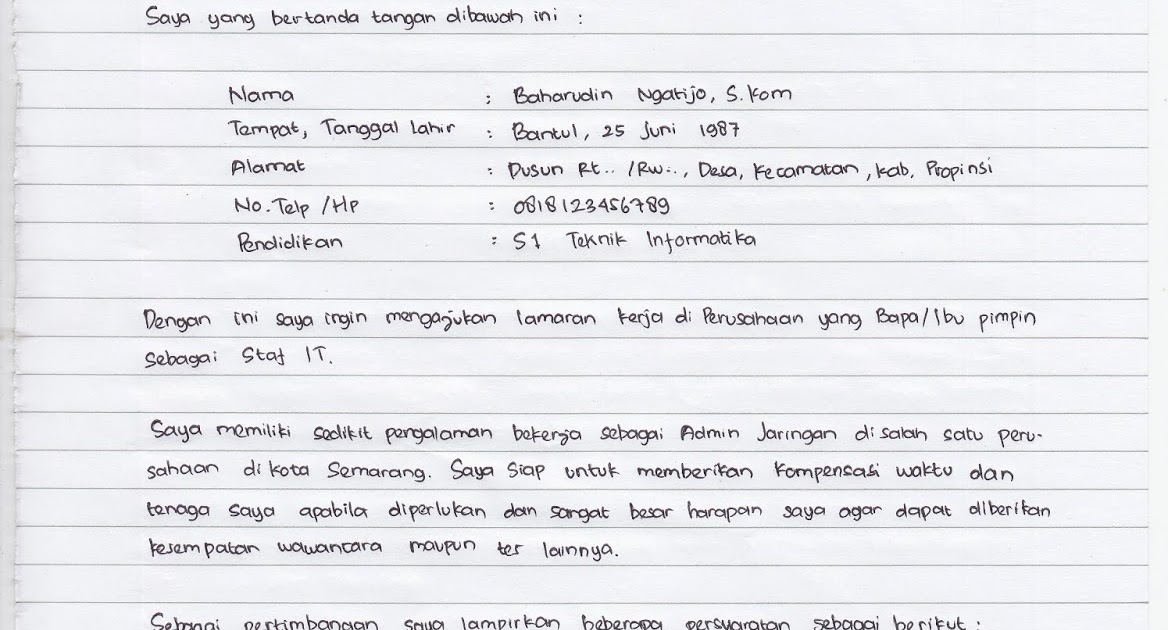 Saya yang bertanda tangan dibawah ini :
Nama : Baharudin Ngatijo, S.Kom
Tempat, Tanggal Lahir : Bantul, 25 Juni 1987
Alamat : Dusun Rt.. /Rw..., Desa, Kecamatan, Kab, Propinsi
No. Telp /Hp : 0818123456789
Pendidikan : S1 Teknik Informatika
Dengan ini saya ingin mengajukan lamaran kerja di Perusahaan yang Bapa/Ibu pimpin
sebagai Staf IT.
Saya memiliki sedikit pengalaman bekerja sebagai Admin Jaringan di salah satu peru-
sahaan di kota Semarang. Saya siap untuk memberikan kompensasi waktu dan
tenaga saya apabila diperlukan dan sangat besar harapan saya agar dapat diberikan
kesempatan wawancara maupun tes lainnya.
Sebagai pertimbangan saya lampirkan beberapa persyaratan sebagai berikut :